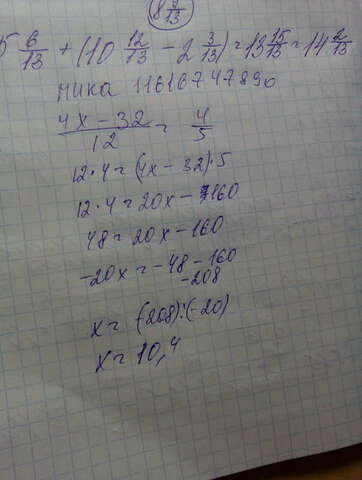 8 9/13
5 6/13 + (10 12/13 - 2 3/13) = 13 15/13 = 14 2/13
ника 11616747890
4x - 32/12 = 4/5
12·4 = (4x - 32)·5
12·4 = 20x - 160
48 = 20x - 160
-20x = -48 - 160
-208
x = (-208):(-20)
x = 10,4